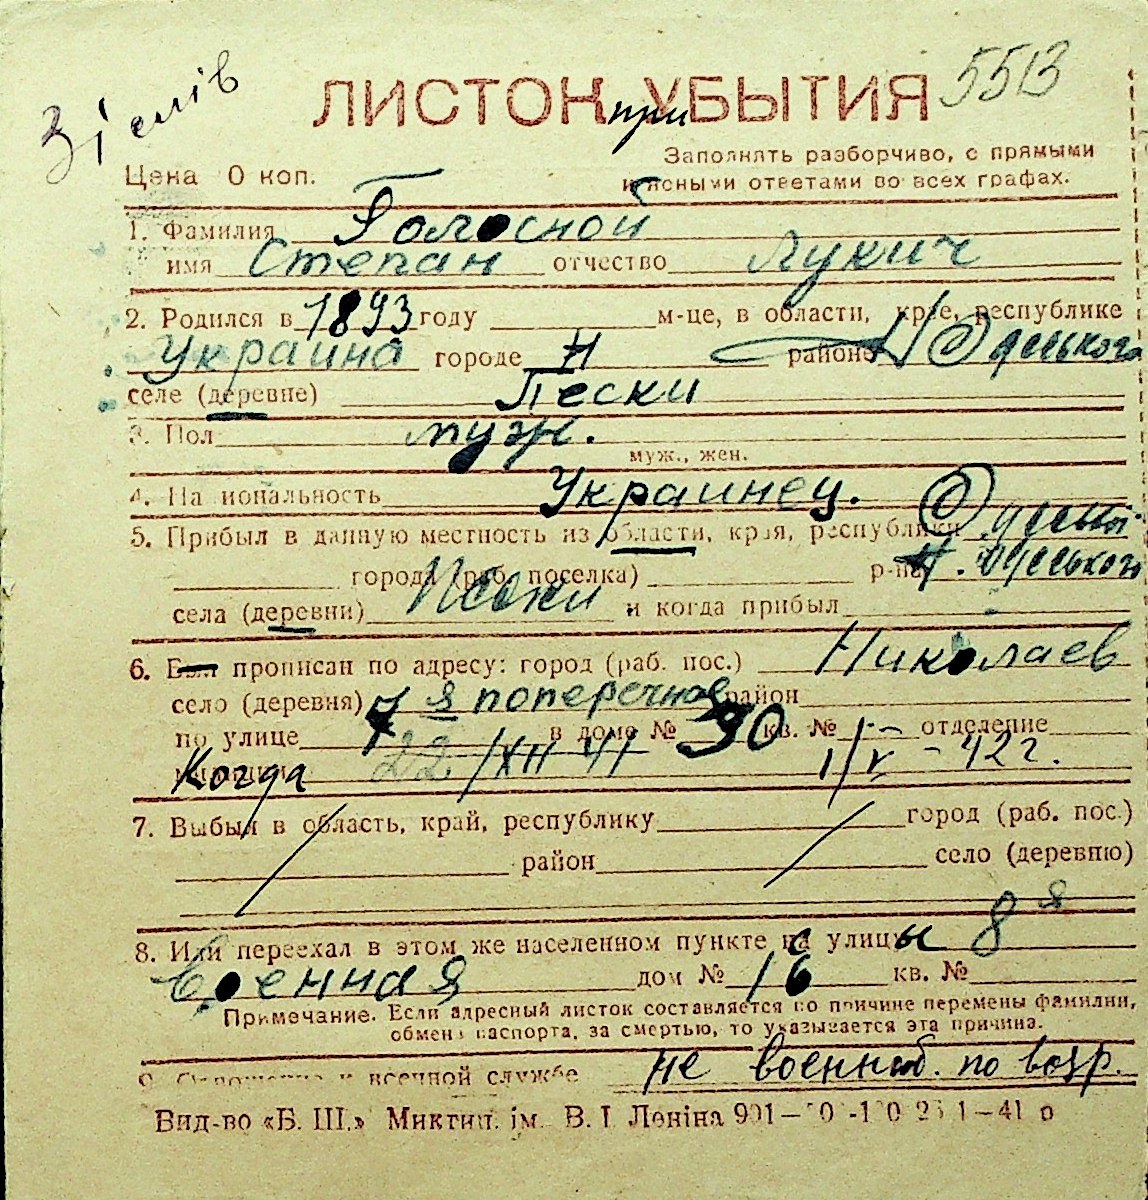 5513
ЛИСТОК при УБЫТИЯ
Цена 0 коп.
Заполнять разборчиво, с прямыми
и ясными ответами во всех графах.
1. Фамилия Голосной
имя Степан отчество Лукич
2. Родился в 1893 году м-це, в области, крае, республике
Украина городе районе Н Одеського
селе (деревне) Пески
3. Пол муж.
муж., жен.
4. Национальность Украинец.
5. Прибыл в данную местность из области, края, республики
города (раб. поселка) р-на Н. Одеського
села (деревни) Пески и когда прибыл
6. Был прописан по адресу: город (раб. пос.) Николаев
село (деревня) 7 я поперечная район
по улице в доме № 30 кв. № отделение
Когда 22/XII 41 1/V - 42 г.
7. Выбыл в область, край, республику город (раб. пос.)
район село (деревню)
8. Или переехал в этом же населенном пункте с улицы 8 я
Военная дом № 16 кв. №
Примечание. Если адресный листок составляется по причине перемены фамилии,
обмена паспорта, за смертью, то указывается эта причина.
9. Отношение к военной службе не военнооб. по возр.
Вид-во «Б. Ш.» ім. В. І. Леніна